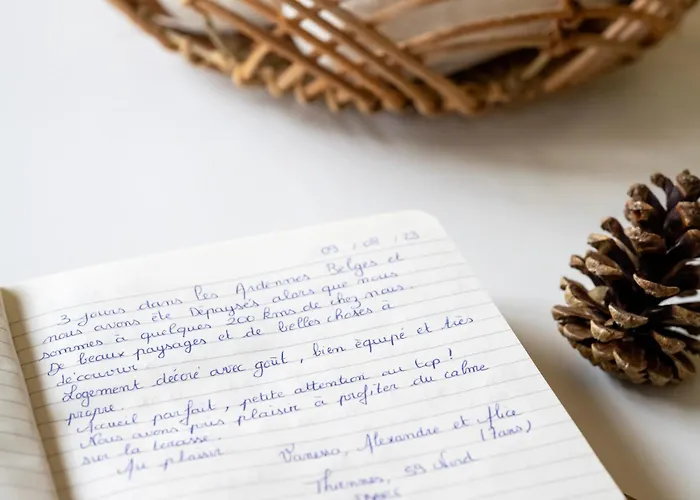 09 / 08 / 23
3 jours dans les Ardennes Belges et
nous avons été Dépaysés alors que nous
sommes à quelques 200 kms de chez nous.
De beaux paysages et de belles choses à
découvrir.
Logement décoré avec goût, bien équipé et très
propre.
Accueil parfait, petite attention au top !
Nous avons pris plaisir à profiter du calme
sur la terasse.
Au plaisir
Vanessa, Alexandre et Alice
(7ans)
59 Nord
FRANCE